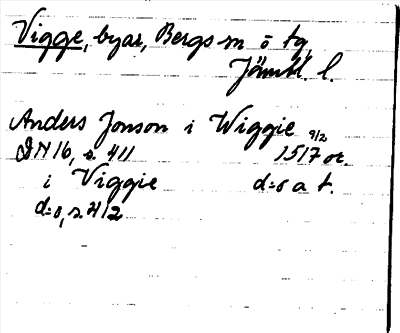 Vigge, byar, Bergs sn o tg,
Jämtl. l.
Anders Jonson i Wiggie 9/2
DN 16, s. 411 1517 or.
i Viggie d:o a t.
d:o, s. 412